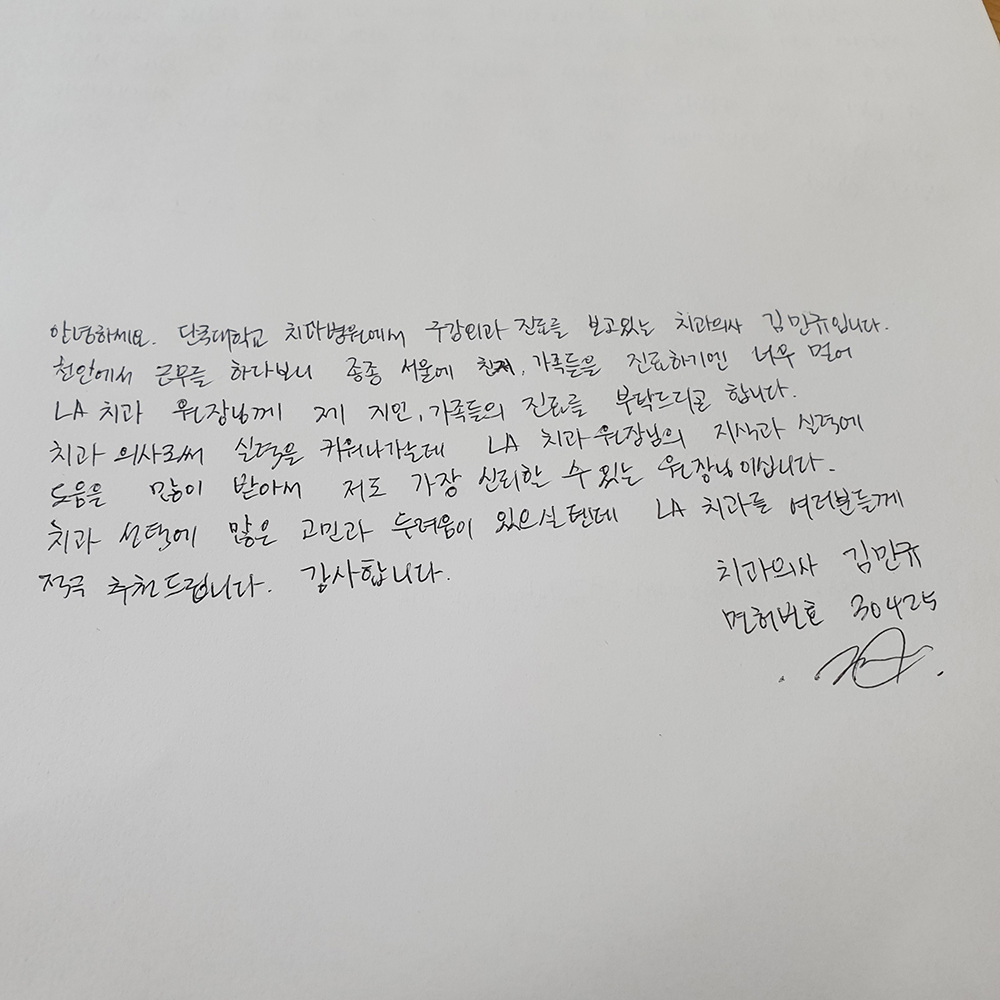 안녕하세요. 단국대학교 치과병원에서 구강외과 진료를 보고있는 치과의사 김민규입니다.
천안에서 근무를 하다보니 종종 서울에 가족들을 진료하기엔 너무 멀어
LA 치과 원장님께 제 지인, 가족들의 진료를 부탁드리곤 합니다.
치과 의사로써 실력을 키워나가는데 LA 치과 원장님의 지식과 실력에
도움을 많이 받아서 저도 가장 신뢰할 수 있는 원장님이십니다.
치과 선택에 많은 고민과 두려움이 있으실텐데 LA 치과를 여러분들께
적극 추천드립니다. 감사합니다.
치과의사 김민규
면허번호 30425